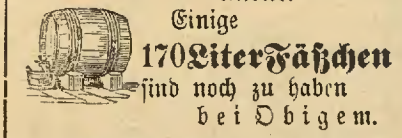 Einige
170 Liter Fäßchen
sind noch zu haben
bei Obigem.